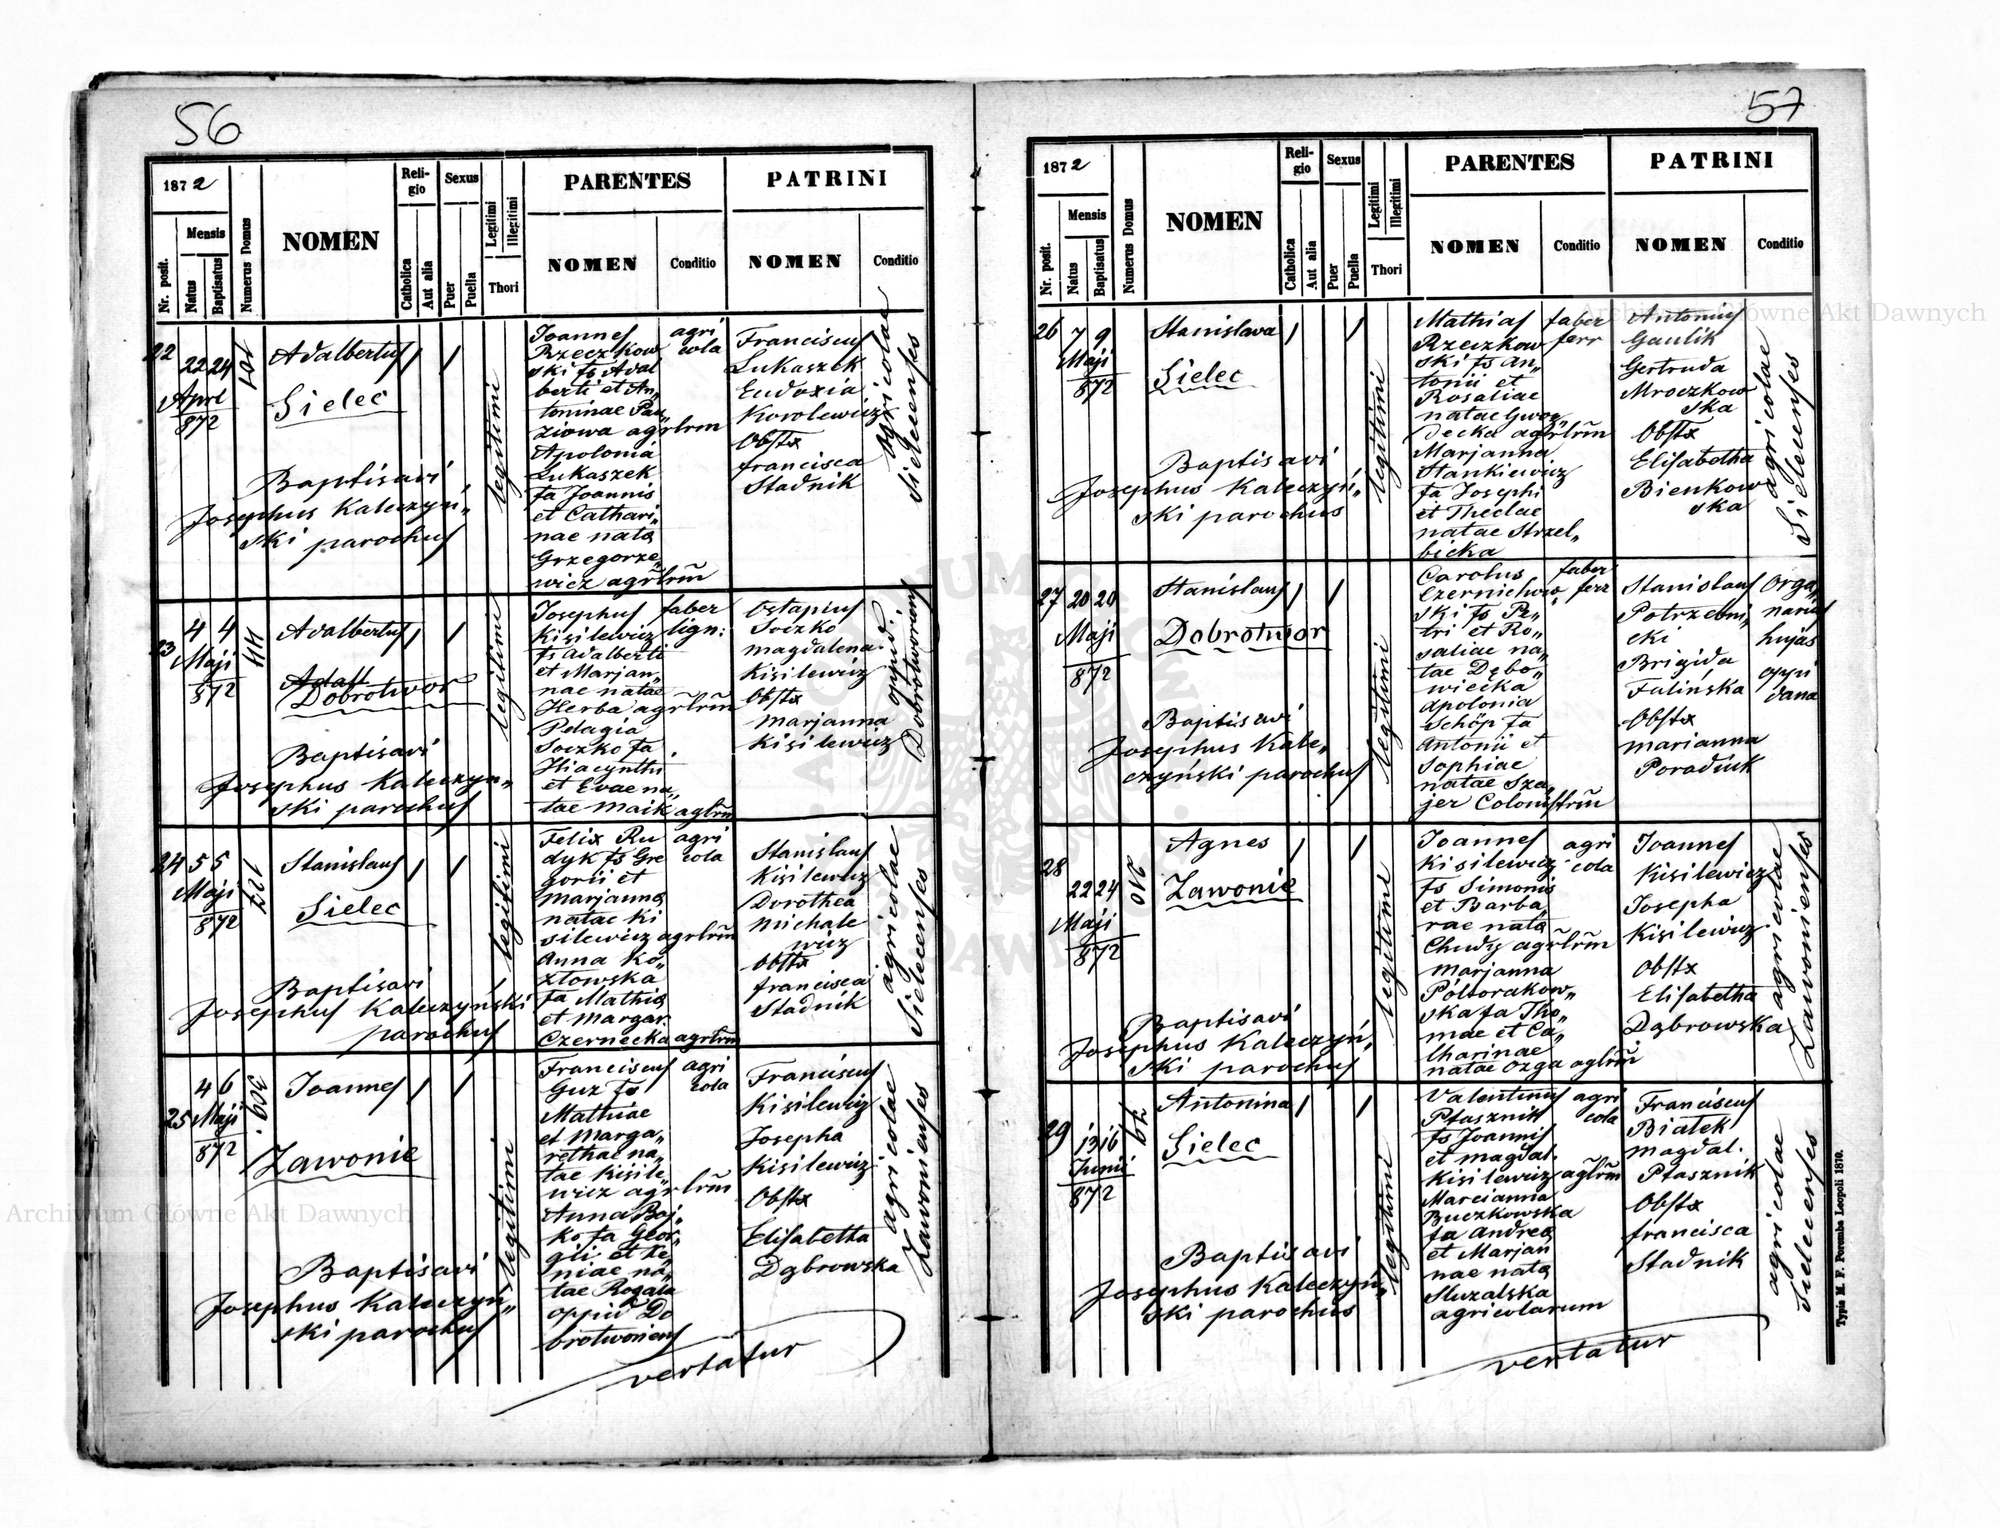 56
1872
Mensis
Nr. posit.
Natus
Baptisatus
Numerus Domus
NOMEN
Reli-
gio
Catholica
Aut alia
Sexus
Puer
Puella
Legitimi
Illegitimi
Thori
PARENTES
NOMEN
Conditio
PATRINI
NOMEN
Conditio
22
22 24
Aprl
872
101
Adalbertus
Sielec
Baptisavi
Josephus Kaleczyń„
ski parochus
legitimi
Joannes agri
Rzeczkow cola
ski fs Adal
berti et An„
toninae Pau„
ziowa agrlrm
Apolonia
Lukaszek
fa Joannis
et Cathari„
nae nata
Grzegorze„
wicz agrlrm
Franciscus
Lukaszek
Eudoxia
Korolewicz
Obstx
francisca
Stadnik
agricolae
Sielecenses
23
4 4
Maji
872
44
Adalbertus
Dobrotwor
Baptisavi
Josephus Kaleczyn„
ski parochus
legitimi
Josephus faber
Kisilewicz lign:
fs Adalberti
et Marjan„
nae natae
Herba agrlrm
Pelagia
Soczko fa
Hiacynthi
et Evae na„
tae Maik agrlrm
Ostapius
Soczko
magdalena
Kisilewicz
Obstx
marjanna
Kisilewicz
opid.
Dobrotworiens
24
5 5
Maji
872
127
Stanislaus
Sielec
Baptisavi
Josephus Kaleczyński
parochus
legitimi
Felix Ru agri
dyk fs Gre cola
gorii et
marjanna
natae Ki
silewicz agrlrm
Anna Ko„
złowska
fa Mathia
et margar.
Czernecka agrlrm
Stanislaus
Kisilewicz
Dorothea
michale
wicz
Obstx
francisca
Stadnik
agricolae
Sielecenses
25
4 6
Maji
872
309.
Joannes
Zawonie
Baptisavi
Josephus Kaleczyń„
ski parochus
legitimi
Franciscus agri
Guz fs cola
Mathiae
et Marga„
rethae na„
tae Kisile„
wicz agrlrm
Anna Boj„
ko fa Geor„
gii et Xe
niae na„
tae Rogala
oppid Do
brotworiens
Franciscus
Kisilewicz
Josepha
Kisilewicz
Obstx
Elisabetha
Dąbrowska
agricolae
Zawonienses
vertatur
57
1872
Mensis
Nr. posit.
Natus
Baptisatus
Numerus Domus
NOMEN
Reli-
gio
Catholica
Aut alia
Sexus
Puer
Puella
Legitimi
Illegitimi
Thori
PARENTES
NOMEN
Conditio
PATRINI
NOMEN
Conditio
26
7 9
Maji
872
Stanislava
Sielec
Baptisavi
Josephus Kaleczyń„
ski parochus
legitimi
Mathias faber
Rzeczkow ferr
ski fs An„
tonii et
Rosaliae
natae Gwoz„
decka agrlrm
Marjanna
Stankiewicz
fa Josephi
et Theclae
natae Strzel„
bicka
Antonius
Gaulik
Gertruda
Mroczkow
ska
Obstx
Elisabetha
Bienkow
ska
agricolae
Sielecenses
27
20 20
Maji
872
Stanislaus
Dobrotwor
Baptisavi
Josephus Kale„
czyński parochus
legitimi
Carolus faber
Czernichow„ ferr
ski fs Pe„
tri et Ro„
saliae na„
tae Dębo„
wiecka
Apolonia
Schöp fa
Antonii et
Sophiae
natae Sza„
jer Colonistrm
Stanislaus
Potrzebni„
cki
Brigida
Falinska
Obstx
marianna
Poradiuk
Orga„
narius
hujas
oppi
dana
28
22 24
Maji
872
210
Agnes
Zawonie
Baptisavi
Josephus Kaleczyń„
ski parochus
legitimi
Joannes agri
Kisilewicz cola
fs Simonis
et Barba„
rae nata
Chudy agrlrm
marjanna
Półtorakow„
ska fa Tho„
mae et Ca„
tharinae
natae Ozga aglrm
Joannes
Kisilewicz
Josepha
Kisilewicz
Obstx
Elisabetha
Dąbrowska
agricolae
Zawonienses
29
13 16
Junii
872
Antonina
Sielec
Baptisavi
Josephus Kaleczyń„
ski parochus
legitimi
Valentinus agri
Ptasznik cola
fs Joannis
et magdal.
Kisilewicz agrlrm
Marcianna
Buczkowska
fa Andrea
et Marjan
nae nata
Sluzalska
agricolarum
Franciscus
Białek
magdal.
Ptasznik
Obstx
francisca
Stadnik
agricolae
Sielecenses
vertatur
Typis M. F. Poremba Leopoli 1870.
Archiwum Główne Akt Dawnych
Archiwum Główne Akt Dawnych